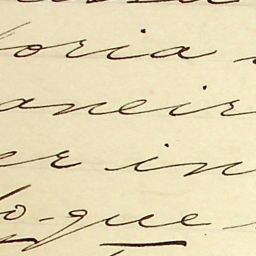 oria
aneir
er in
o-que